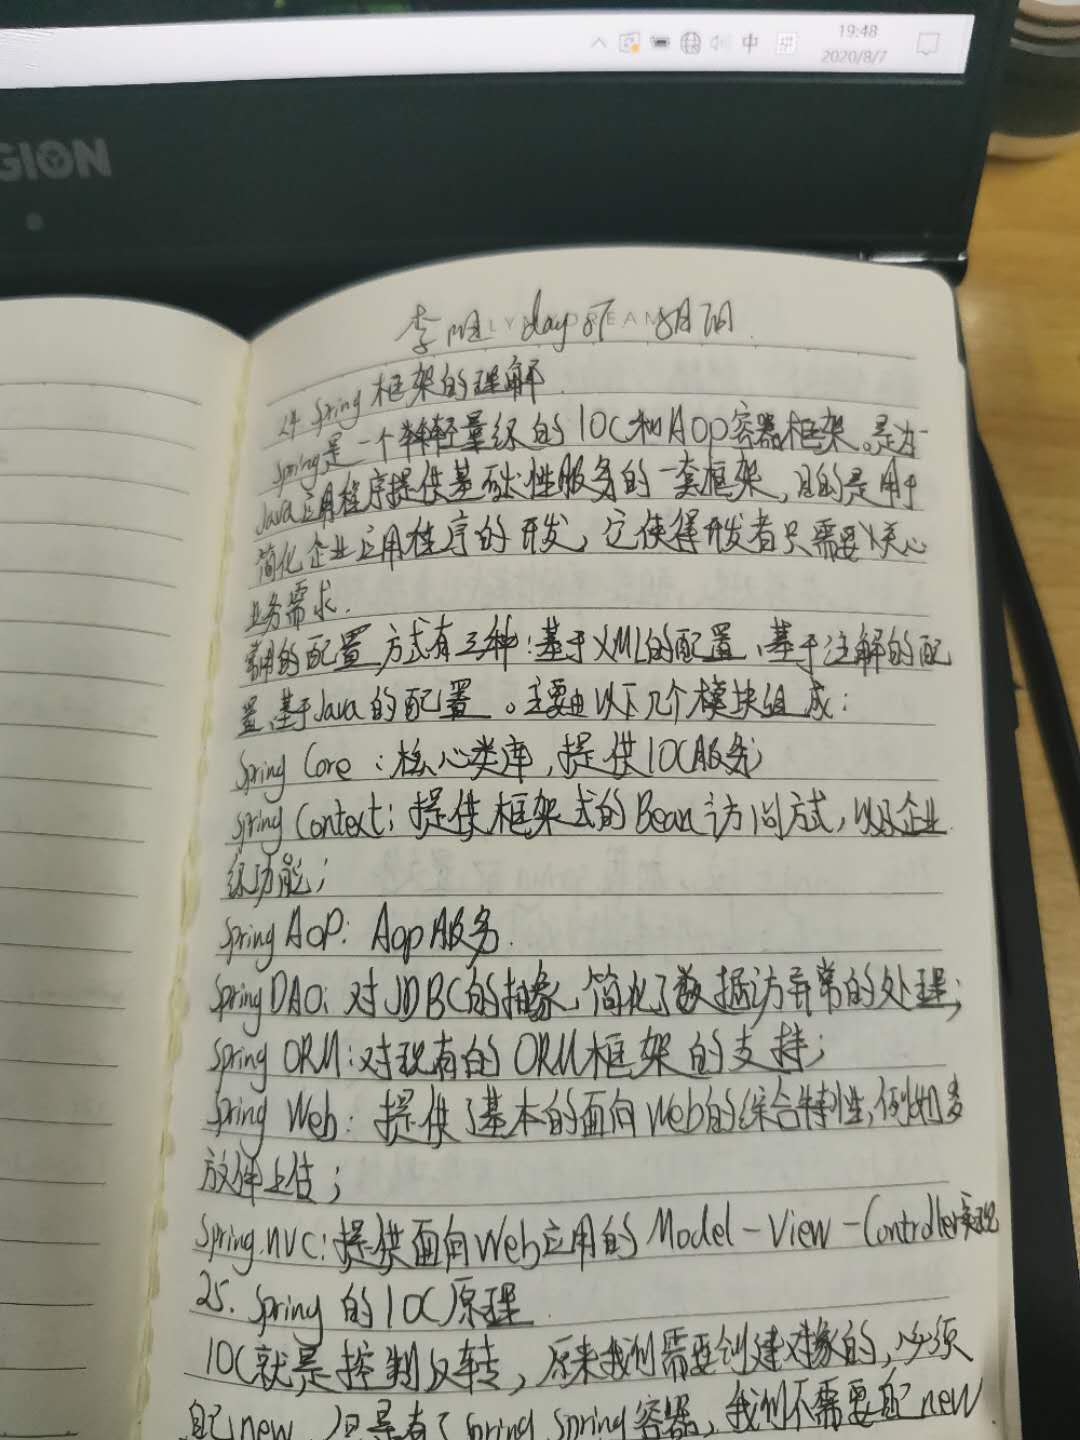 19:48
中
2020/8/7
GION
李 day 8月7日
24 Spring 框架的理解
Spring是一个轻量级的IOC和AOP容器框架。是为
Java应用程序提供基础性服务的一套框架,目的是用于
简化企业应用程序的开发,它使得开发者只需要关心
业务需求.
常用的配置方式有三种:基于XML的配置、基于注解的配
置、基于Java的配置。主要由以下几个模块组成:
Spring Core:核心类库,提供IOC服务
Spring Context:提供框架式的Bean访问方式,以及企业
级功能;
Spring AOP: Aop服务.
Spring DAO:对JDBC的抽象,简化了数据访异常的处理;
Spring ORM:对现有的ORM框架的支持;
Spring Web:提供了基本的面向Web的综合特性,例如多
放件上传;
Spring MVC:提供面向Web应用的Model-View-Controller实现
25. Spring 的IOC原理
IOC就是控制反转,原来我们需要创建对象的,必须
自己new,但是有了Spring,Spring容器,我们不需要自己new